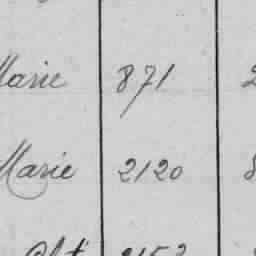 Marie 871 2
Marie 2120 8